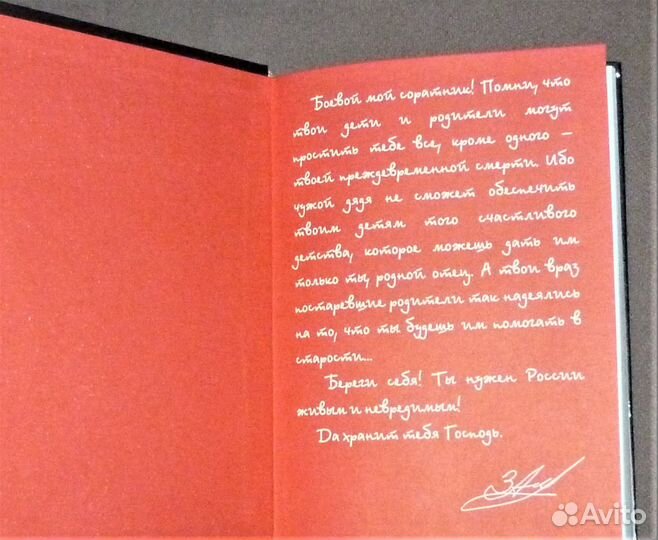 Боевой мой соратник! Помни, что
твои дети и родители могут
простить тебе все, кроме одного –
твоей преждевременной смерти. Ибо
чужой дядя не сможет обеспечить
твоим детям того счастливого
детства, которое можешь дать им
только ты, родной отец. А твои враз
постаревшие родители так надеялись
на то, что ты будешь им помогать в
старости...
Береги себя! Ты нужен России
живым и невредимым!
Да хранит тебя Господь.
Avito